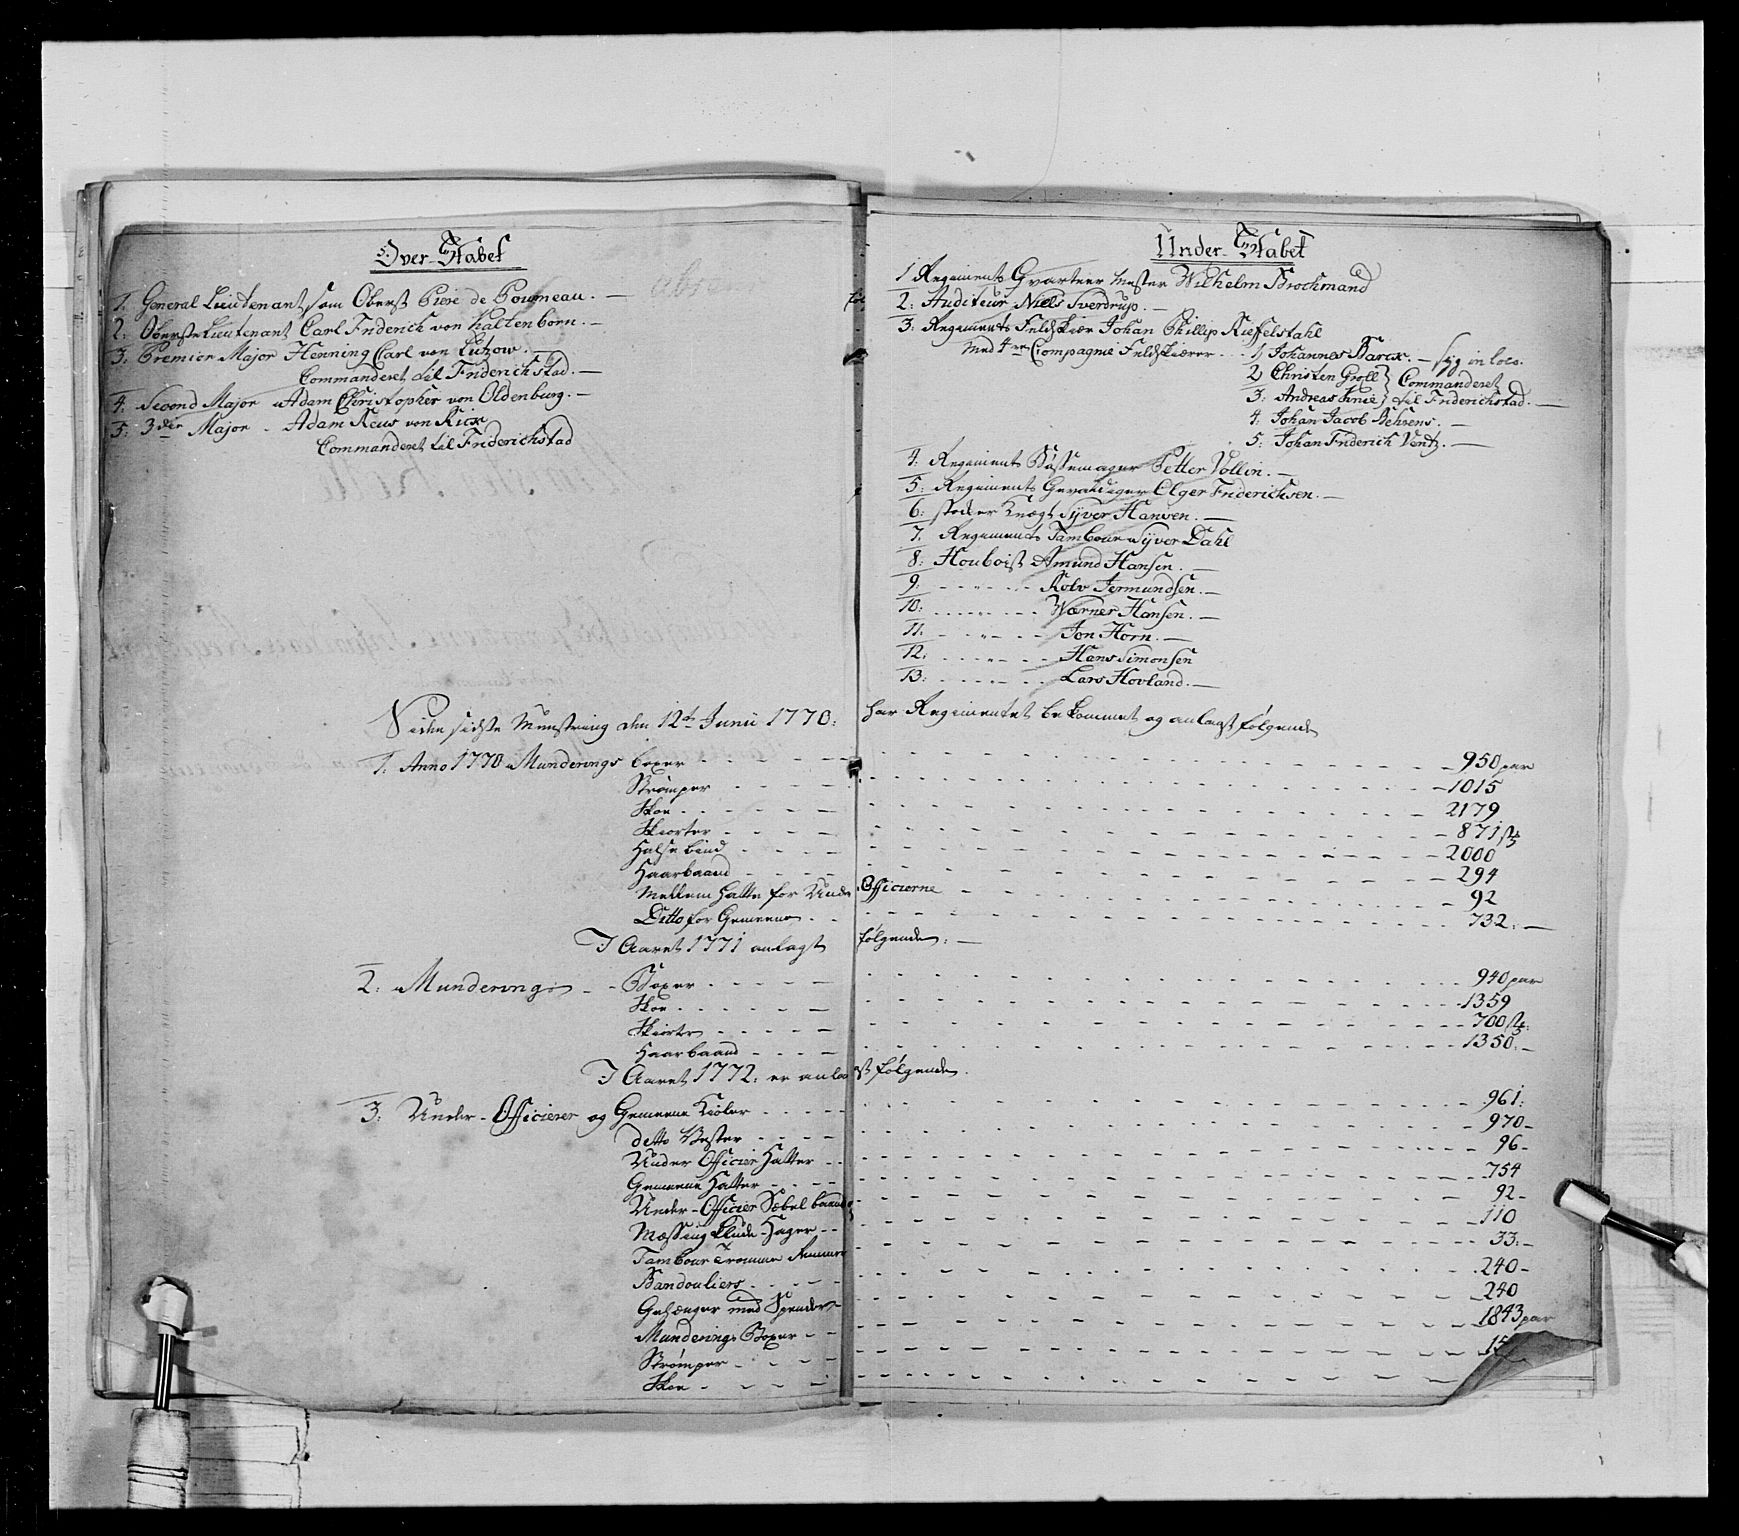 Over-Stabet
1. General Lieutenant, som Oberst Piere de Poumeau. —
2. Oberste Lieutenant Carl Friderich von Kaltenborn. —
3: Premier Major Henning Carl von Lützow. —
Commanderet til Friderichstad. —
4: Second Major Adam Christopher von Oldenburg. —
5: 3die Major - Adam Reus von
Commanderet til Friderichstad
Under-Stabet
1 Regiments Qvarteer Mester Wilhelm Brochmand
2: Auditeur Niels Sverdrup. —
3: Regiments Feldskiær Johan Phillip Rieffelstahl
Med 4re Compagnie Feldskiærer . . 1, Johannes . — syg in loco.
2, Christen Groll } Commanderet
3: Andreas } til Friderichstad. —
4: Johan Jacob Behrens. —
5: Johan Friderich Ventz. —
4: Regiments Bøssemager Petter Vollin. —
5: Regiments Gevaldiger Olger Friderichsen. —
6: Knægt Syver Hansen. —
7. Regiments Tambour Syver Dahl
8: Houboist Amund Hansen. —
9: - - - - - Rolv Jermundsen. —
10: - - - - - Werner Hansen. —
11: - - - - - Jon Horn. —
12: - - - - - Hans Simonsen
13: - - - - - Lars Hovland. —
Siden sidste Munstring den 12te Junii 1770: har Regimentet bekommet og anlagt følgende
1: Anno 1770 Munderings boxer - - - - 950 par
Strømper - - - - 1015
Skoe - - - - 2179
Skiorter - - - - 871 stk
Halsebind - - - - 2000
Haarbaand - - - - 294
Mellem Hatte for Under Officierne - - - - 92
Ditto for Gemeene - - - - 732: —
I Aaret 1771 anlagt følgende: —
2: Munderings - - Boxer - - - - 940 par
Skoe - - - - 1359
Skiorte - - - - 700 stk:
Haarbaand - - - - 1350: —
I Aaret 1772: er anlagt følgende.
3: Under-Officierer og Gemeene Kioler - - - - 961:
detto Vester - - - - 970 -
Under Officier Hatter - - - - 96 -
Gemeene Hatter - - - - 754
Under-Officier Sæbel baand - - - - 92 -
Mæssing - - - - 110
Tambour Tromme - - - - 33: —
Bandouliers - - - - 240 -
Gehænger med Spender - - - - 240
Munderings Boxer - - - - 1843 par
Strømper - - - - 15
Skoe - - - -